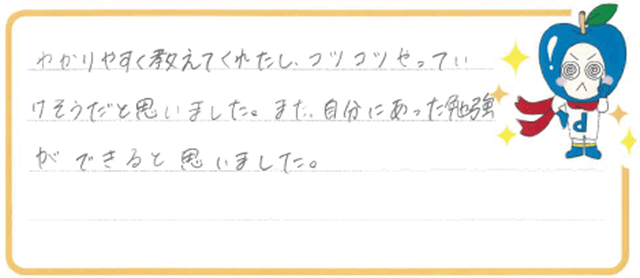 わかりやすく教えてくれたし、コツコツやってい
けそうだと思いました。また、自分にあった勉強
ができると思いました。
d